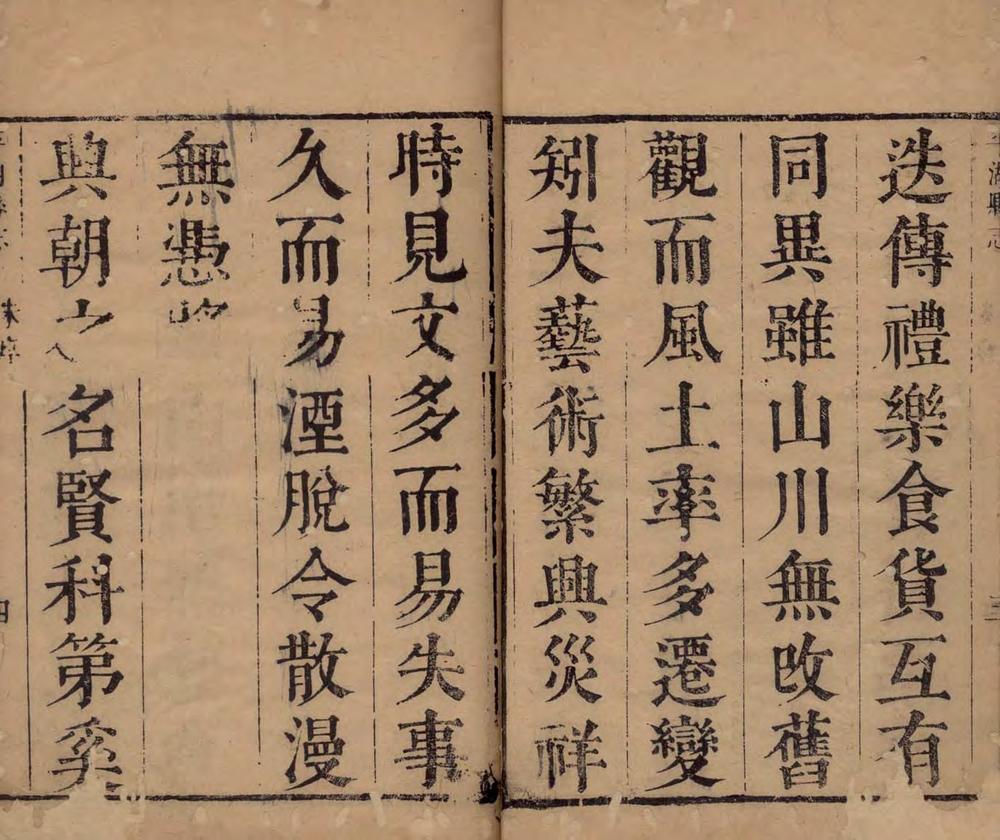 湖縣志
迭傳禮樂食貨互有
同異雖山川無改舊
觀而風土率多遷變
矧夫藝術繁興災祥
時見文多而易失事
久而易湮脫令散漫
無憑
典朝 名賢科第奕